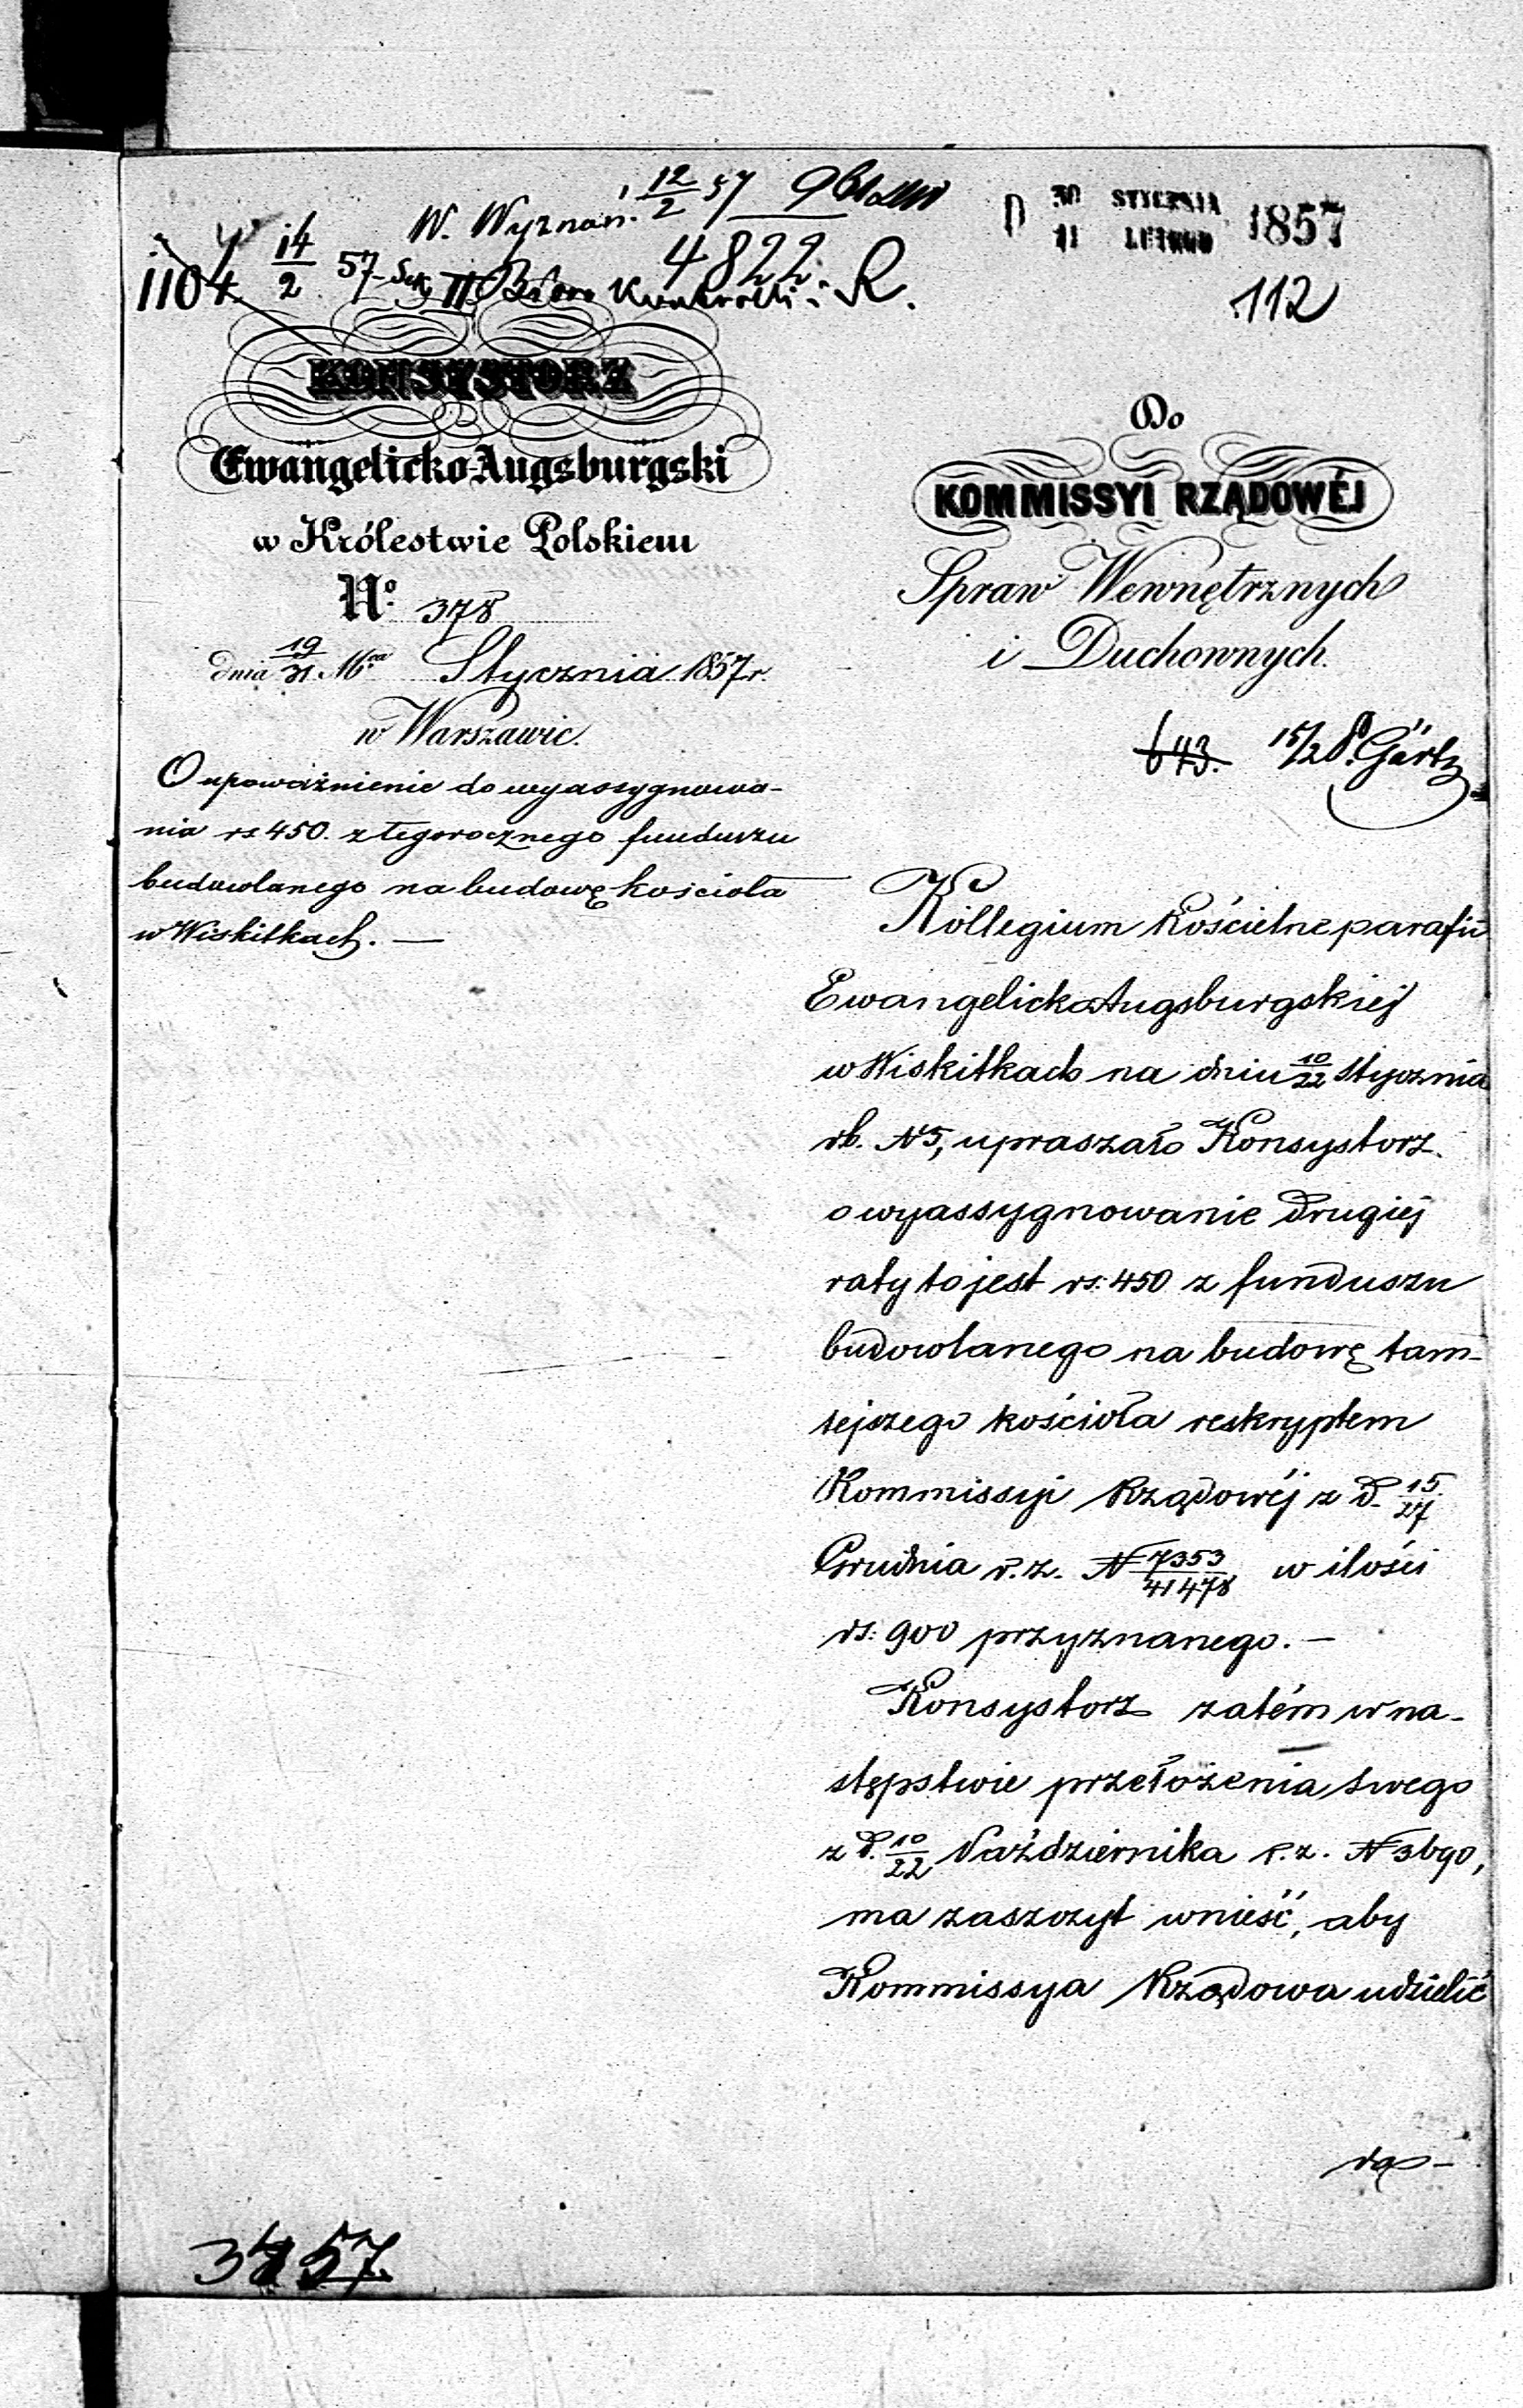 W. Wyznań. 12/2 57
D 30 STYCZNIA 1857
11 LUTEGO
1104 14/2 57 Sek. II
4822. R.
112
KONSYSTORZ
Ewangelicko-Augsburgski
w Królestwie Polskiem
No. 378
dnia 19/31 Mca Stycznia 1857 r.
w Warszawie.
O upoważnienie do wyassygnowa-
nia rs 450. z tegorocznego funduszu
budowlanego na budowę kościoła
w Wiskitkach. —
Do
KOMMISSYI RZĄDOWÉJ
Spraw Wewnętrznych
i Duchownych.
643. 15/2 Gärtz
Kollegium Kościelne parafii
Ewangelicko Augsburgskiej
w Wiskitkach na dniu 10/22 Stycznia
rb. N 5, upraszało Konsystorz
o wyassygnowanie drugiej
raty to jest rs: 450 z funduszu
budowlanego na budowę tam-
tejszego kościoła reskryptem
Kommissyi Rządowéj z d. 15/27
Grudnia r. z. N 7353/41478 w ilości
rs: 900 przyznanego. —
Konsystorz zatém w na-
stępstwie przełożenia swego
z d. 10/22 Października r. z. N 3690,
ma zaszczyt wnieść, aby
Kommissya Rządowa udzielić